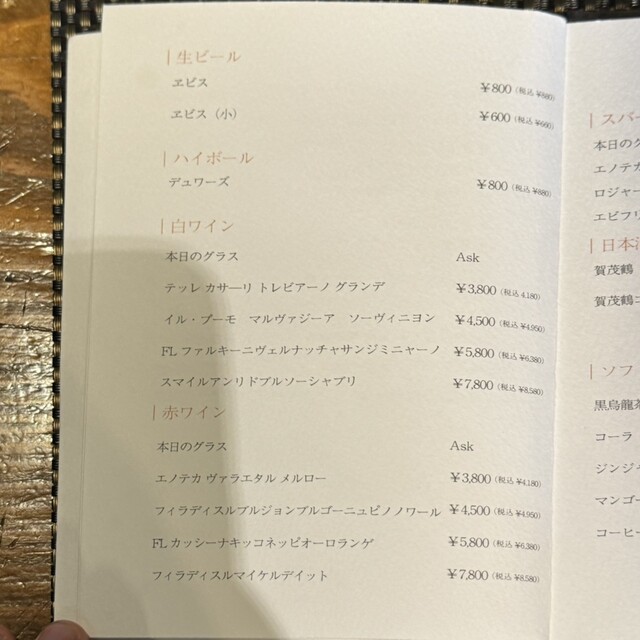 | 生ビール
ヱビス ¥800（税込 ¥880）
ヱビス（小） ¥600（税込 ¥660）
| ハイボール
デュワーズ ¥800（税込 ¥880）
| 白ワイン
本日のグラス Ask
テッレ カサーリ トレビアーノ グランデ ¥3,800（税込 4,180）
イル・プーモ マルヴァジーア ソーヴィニヨン ¥4,500（税込 ¥4,950）
FL ファルキーニヴェルナッチャサンジミニャーノ ¥5,800（税込 ¥6,380）
スマイルアンリドブルソーシャブリ ¥7,800（税込 ¥8,580）
| 赤ワイン
本日のグラス Ask
エノテカ ヴァラエタル メルロー ¥3,800（税込 ¥4,180）
フィラディスルブルジョンブルゴーニュピノノワール ¥4,500（税込 ¥4,950）
FL カッシーナキッコネッビオーロランゲ ¥5,800（税込 ¥6,380）
フィラディスルマイケルデイット ¥7,800（税込 ¥8,580）
| スパー
本日のグ
エノテカ
ロジャー
エピフリ
| 日本
賀茂鶴
賀茂鶴
| ソフ
黒烏龍茶
コーラ
ジンジャ
マンゴー
コーヒー